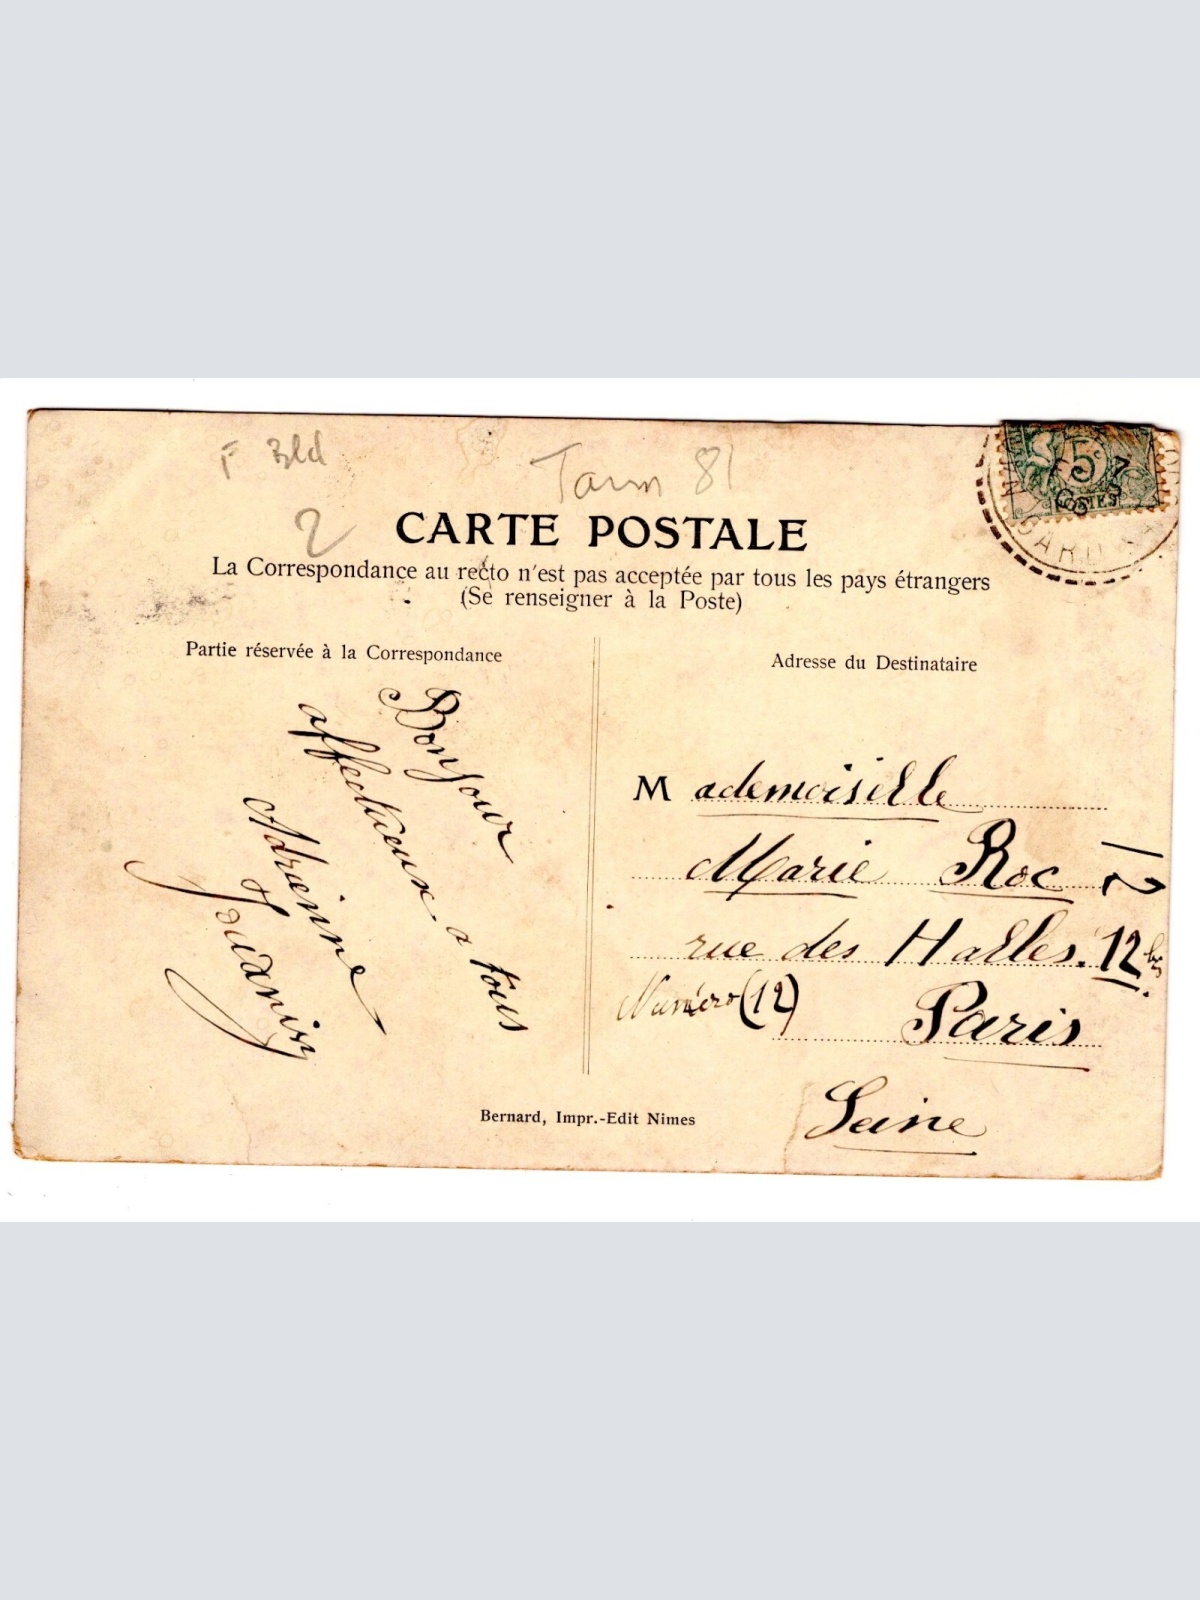 F Bld
Tarn 81
2
5c
POSTES
GARD
CARTE POSTALE
La Correspondance au recto n'est pas acceptée par tous les pays étrangers
(Se renseigner à la Poste)
Partie réservée à la Correspondance
Bonjour
affectueux a tous
Adrienne
Adresse du Destinataire
Mademoiselle
Marie Roc 12
rue des Halles. 12 bis
Numéro (12)
Paris
Seine
Bernard, Impr.-Edit Nimes